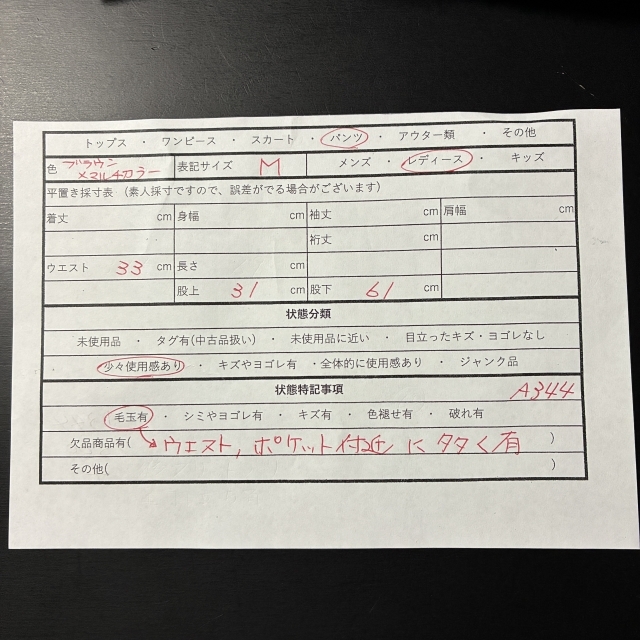 トップス ・ ワンピース ・ スカート ・ パンツ ・ アウター類 ・ その他
色 ブラウン ×マルチカラー 表記サイズ M メンズ ・ レディース ・ キッズ
平置き採寸表 (素人採寸ですので、誤差がでる場合がございます)
着丈 cm 身幅 cm 袖丈 cm 肩幅 cm
裄丈 cm
ウエスト 33 cm 長さ cm
股上 31 cm 股下 61 cm
状態分類
未使用品 ・ タグ有(中古品扱い) ・ 未使用品に近い ・ 目立ったキズ・ヨゴレなし
・ 少々使用感あり ・ キズやヨゴレ有 ・全体的に使用感あり ・ ジャンク品
状態特記事項 A344
毛玉有 ・ シミやヨゴレ有 ・ キズ有 ・ 色褪せ有 ・ 破れ有
欠品商品有( ウエスト, ポケット付近に タタく有 )
その他( )